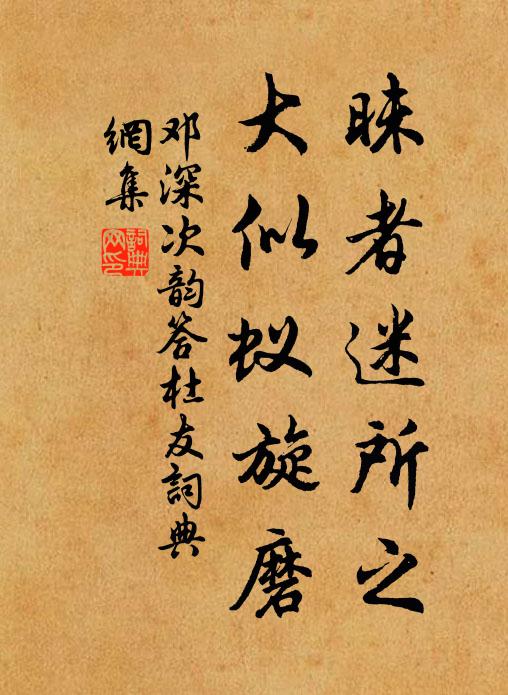 昧者迷所之
大似蚁旋磨
邓深次韵答杜友詞典
網集
詞典
网印